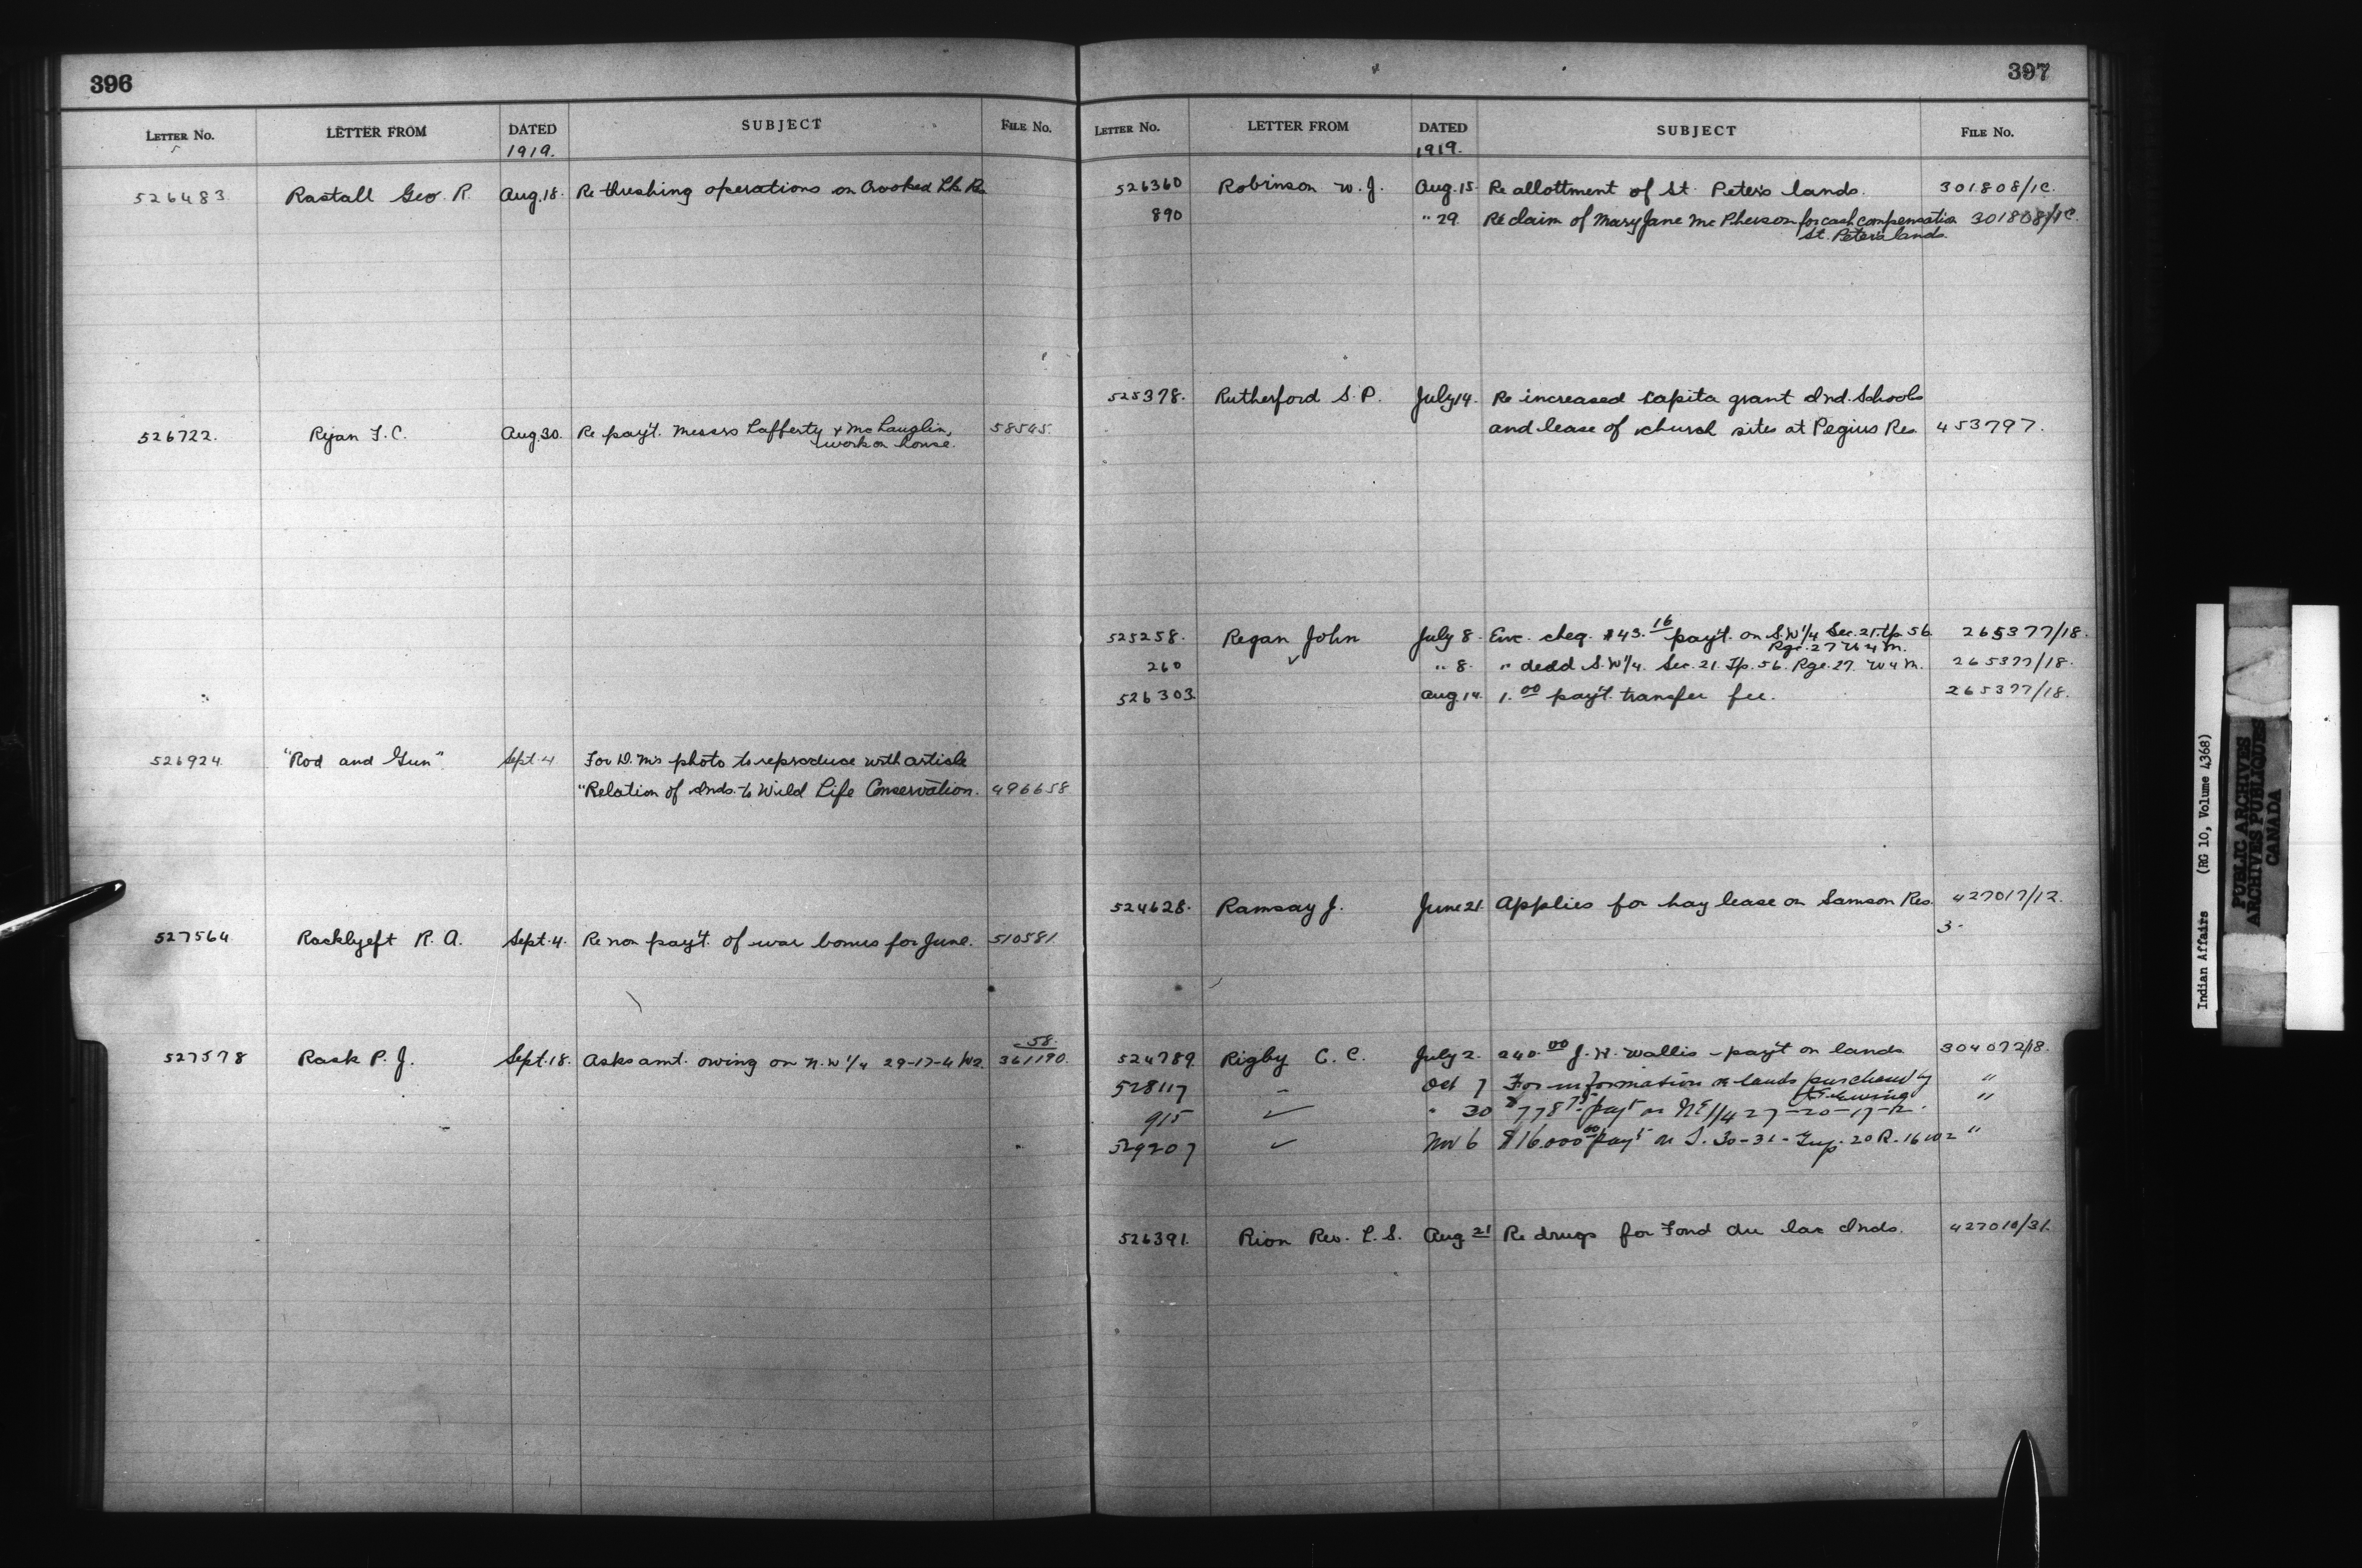 396
LETTER No. LETTER FROM DATED SUBJECT FILE No.
1919.
526483 Rastall Geo. R. Aug.18. Re threshing operations on Crooked Lk. Res.
526722. Ryan F.C. Aug.30. Re pay't. Messrs Lafferty & McLauglin, 58545.
work on house.
526924 "Rod and Gun" Sept.4 For D.M's photo to reproduce with article
"Relation of Inds. to Wild Life Conservation. 496658
527564 Racklyeft R.A. Sept.4. Re non pay't. of war bonus for June. 510581.
58.
527578 Rask P.J. Sept.18. Asks amt. owing on N.W 1/4 29-17-4 W2. 361190.
397
LETTER No. LETTER FROM DATED SUBJECT FILE No.
1919.
526360 Robinson W.J. Aug.15. Re allottment of St. Peter's lands. 301808/1C.
890 " 29. Re claim of Mary Jane McPherson for cash compensation 301808/1C.
St. Peter's lands.
525378. Rutherford S.P. July 14. Re increased capita grant Ind. Schools
and lease of church sites at Pegius Res. 453797.
525258. Regan John July 8. Enc. cheq. $43.16 pay't. on S.W 1/4 Sec.21.Tp.56. 265377/18.
Rge.27 W4M.
260 " 8. " dedd S.W 1/4. Sec.21.Tp.56. Rge.27. W4M. 265377/18.
526303. Aug.14. 1.00 pay't. transfer fee. 265377/18.
524628. Ramsay J. June 21. Applies for hay lease on Samson Res. 427017/12.
3.
524789. Rigby C.C. July 2. 240.00 J.W. Wallis - pay't on lands 304072/18.
528117 - Oct 7 For information re lands purchased by "
Ewing
915 ✓ " 30 $778 pay't on NE 1/4 27-20-17-2. "
529207 ✓ Nov 6 $16.000.00 pay't on S. 30-31- Twp. 20 R. 16 W2 "
526391. Rion Rev. L.S. Aug 21 Re drugs for Fond du lac Inds. 427010/31.
Indian Affairs (RG 10, Volume 4368)
PUBLIC ARCHIVES
ARCHIVES PUBLIQUES
CANADA